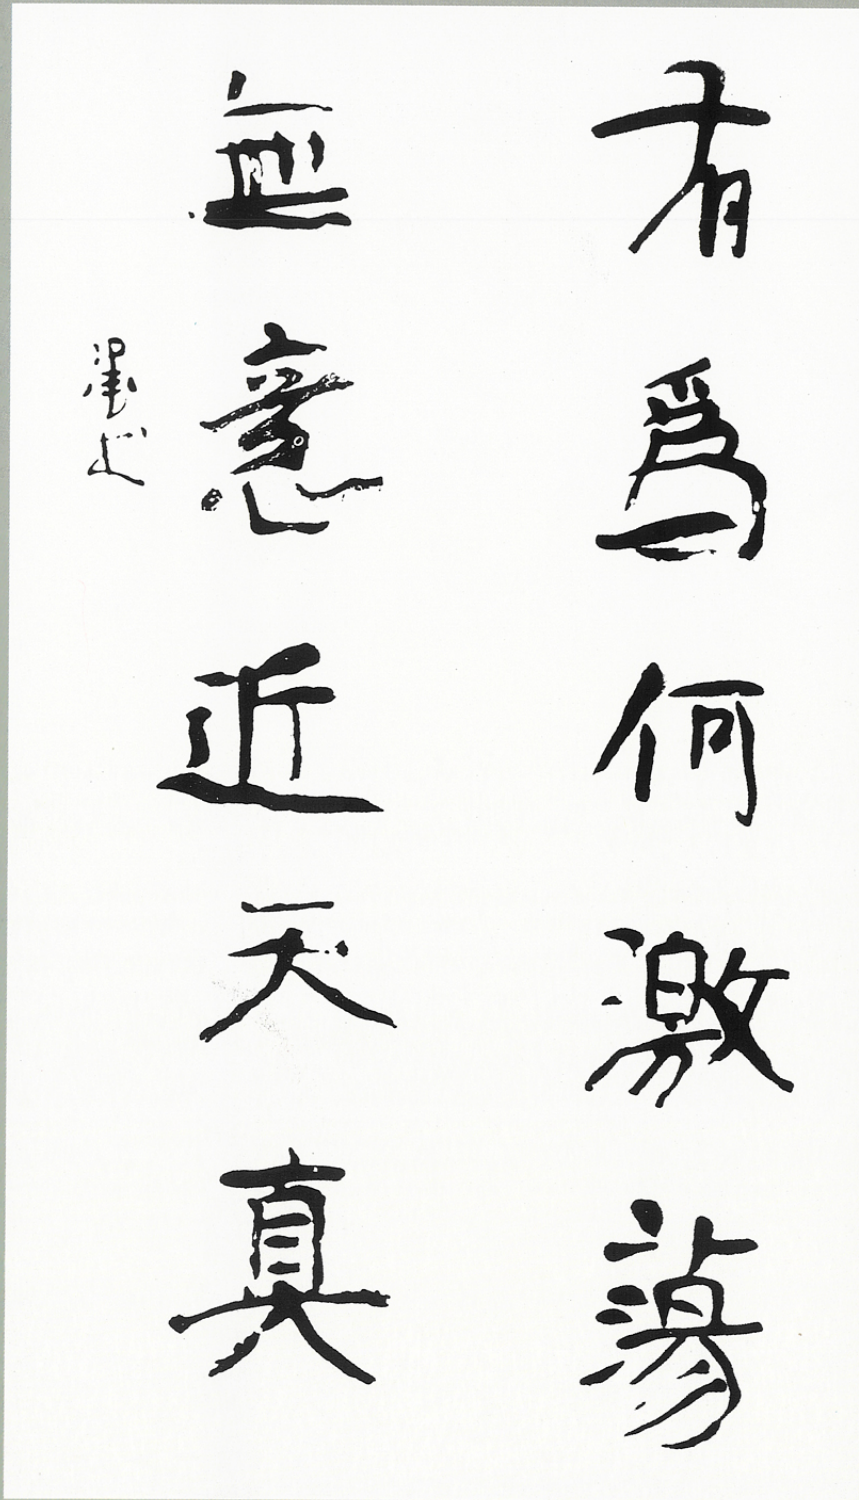 有爲何激蕩
無意近天真